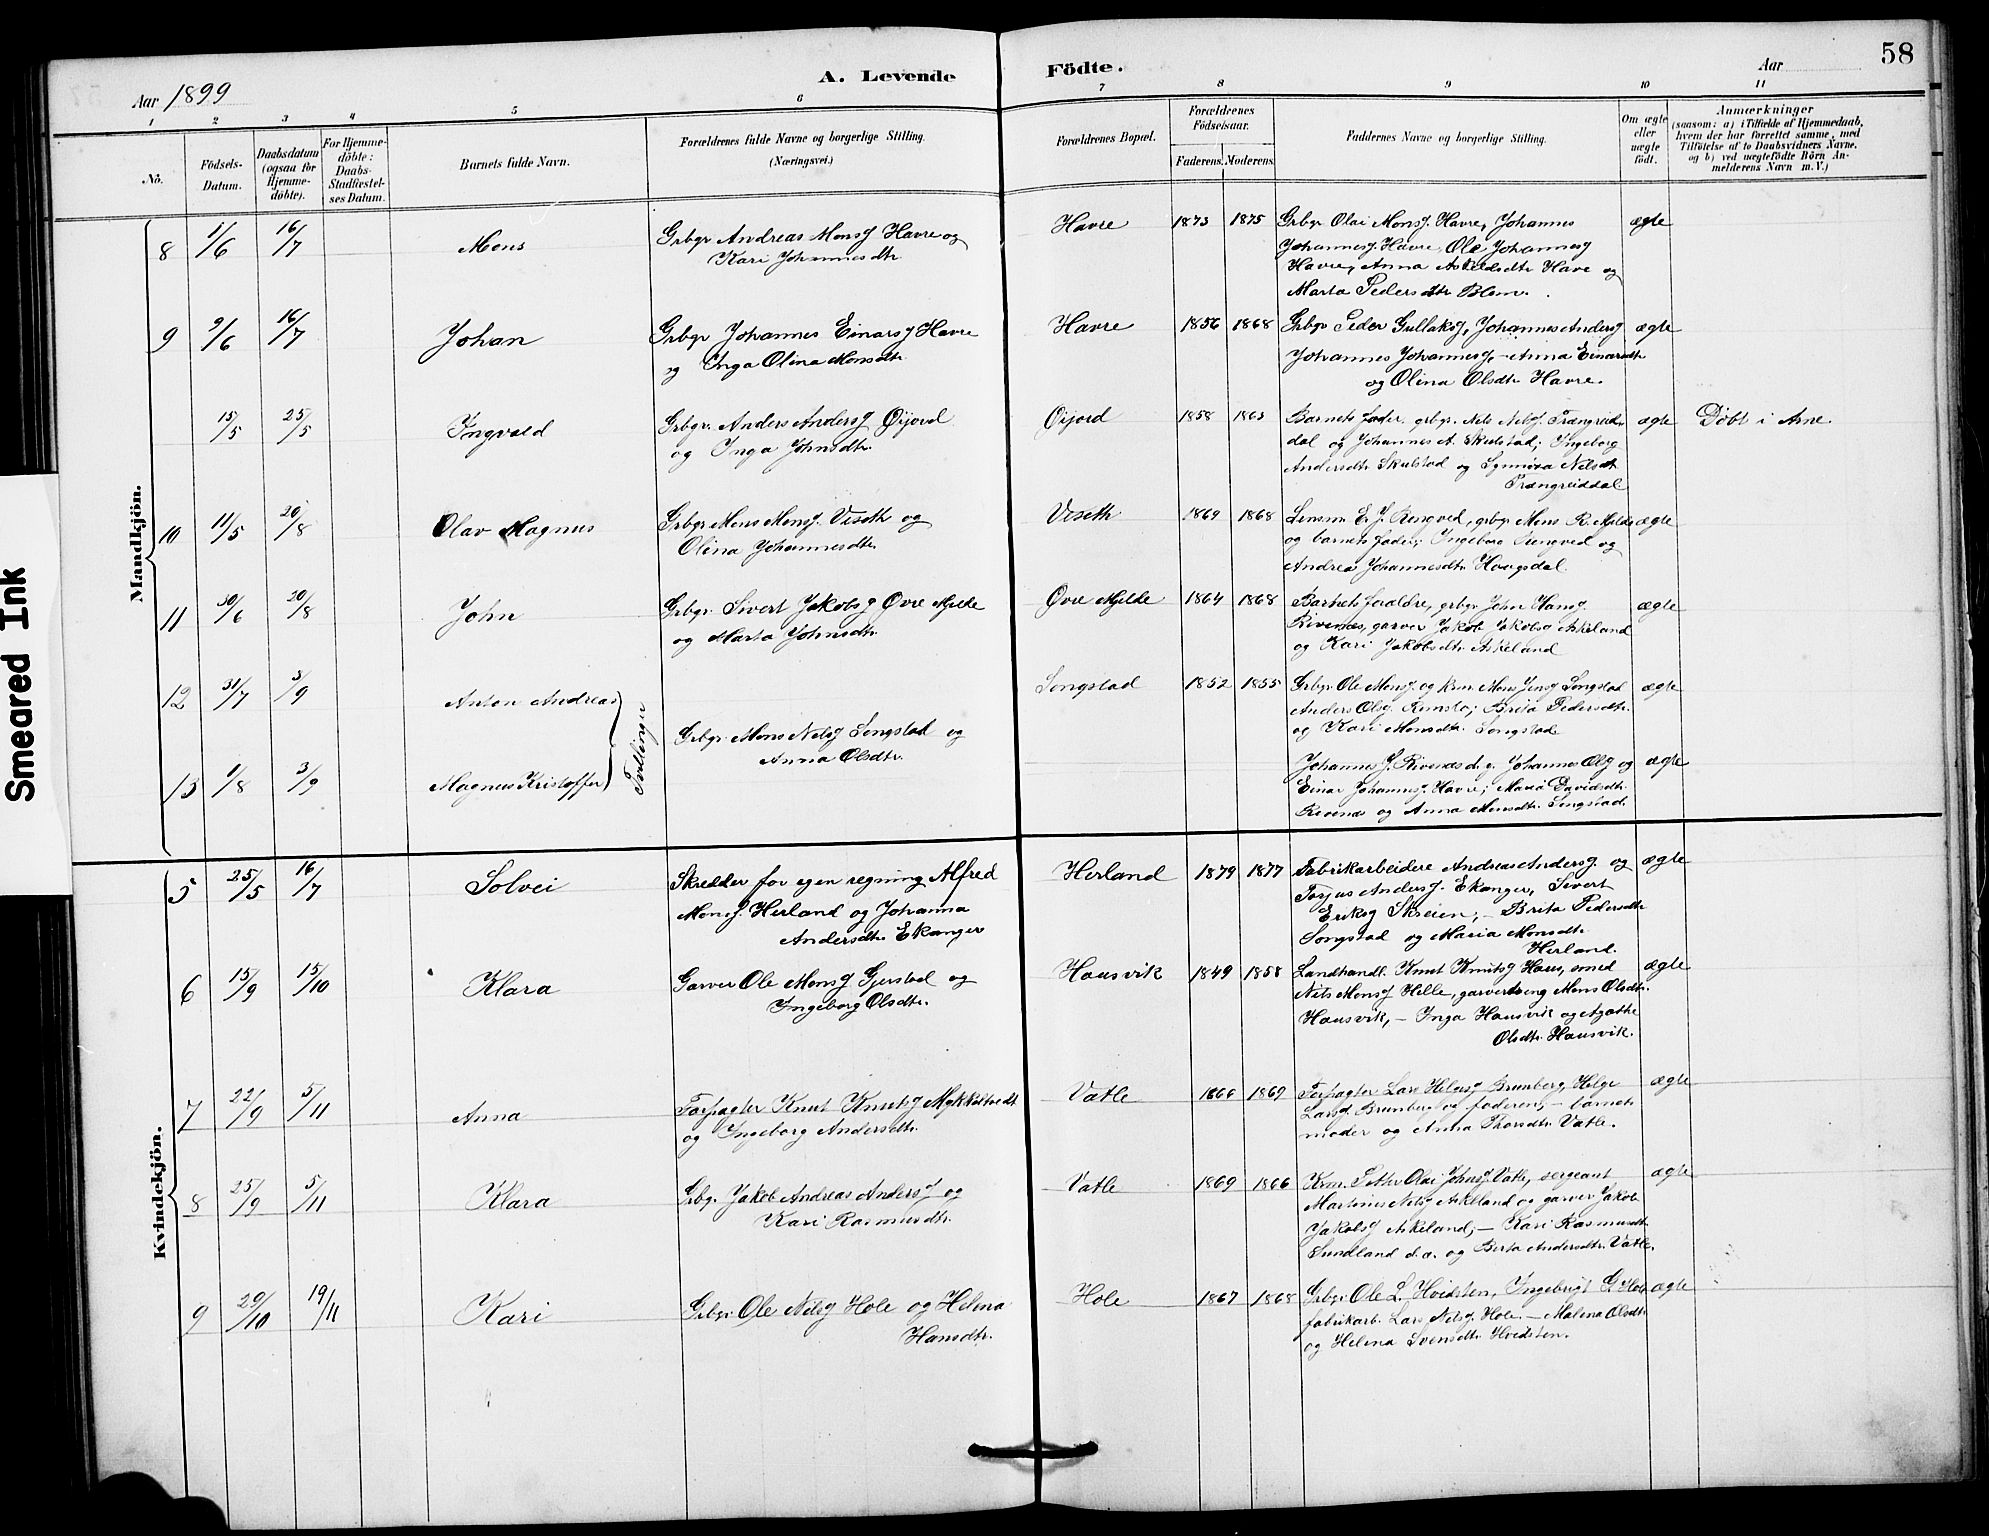 Smeared Ink
58
A. Levende Födte.
Aar 1899
Aar
1 2 3 4 5 6 7 8 9 10 11
No.
Födsels-Datum.
Daabsdatum (ogsaa for Hjemme-döbte).
For Hjemme-döbte: Daabs-Stadfæstel-ses Datum.
Barnets fulde Navn.
Forældrenes fulde Navne og borgerlige Stilling.
(Næringsvei.)
Forældrenes Bopæl.
Forældrenes Födselsaar.
Faderens. Moderens.
Faddernes Navne og borgerlige Stilling.
Om ægte eller uægte födt.
Anmærkninger
(saasom: a) i Tilfælde af Hjemmedaab,
hvem der har forrettet samme, med
Tilföielse af to Daabsvidners Navne,
og b) ved uægtefödte Börn An-
melderens Navn m. V.)
Mandkjön.
8 1/6 16/7 Mons
Grbgr Andreas Monsg Havre og
Kari Johannesdtr.
Havre 1873 1875
Grbgr Olai Monsg. Havre, Johannes
Johannesg. Havre, Ole Johannesg
Havre, Anna Askildsdtr Havre og
Marta Pedersdtr Blom.
ægte
9 9/6 16/7 Johan
Grbgr Johannes Einarsg Havre
og Inga Olina Monsdtr.
Havre 1856 1868
Grbgr Peder Gullaksg, Johannes Andersg
Johannes Johannesg, – Anna Einarsdtr
og Olina Olsdtr Havre.
ægte
15/5 25/5 Ingvald
Grbgr. Anders Andersg Øijord
og Inga Johnsdtr.
Øijord 1858 1863
Barnets fader, grbgr. Nils Nilsg. Trængreid-
dal og Johannes A. Skulstad; Ingeborg
Andersdtr Skulstad og Synnøva Nilsdt
Trængreiddal
ægte
Döbt i Arne
10 11/5 20/8 Olav Magnus
Grbgr Mons Monsg. Viseth og
Olina Johannesdtr.
Viseth 1869 1868
Lensm E. J. Rongved, grbgr Mons R. Mjelde
og barnets fader; Ingeborg Rongved og
Andrea Johannesdtr Haugsdal.
ægte
11 30/6 20/8 John
Grbgr. Sivert Jakobsg Øvre Mjelde
og Marta Johnsdtr.
Øvre Mjelde 1864 1868
Barnets foraldre, grbgr John Hansg.
Rivenæs, garver Jakob Jakobsg Askeland
og Kari Jakobsdtr Askeland
ægte
12 31/7 3/9 Anton Andreas
Tvillinger
Grbgr. Mons Nilsg Songstad og
Anna Olsdtr.
Songstad 1852 1855
Grbgr. Ole Monsg. og krm. Mons Jensg Songstad
Anders Olsg. Romslo; Brita Pedersdtr.
og Kari Monsdtr. Songstad
ægte
13 1/8 3/9 Magnus Kristoffer
Johannes J. Rivenæs d. y. Johannes Olsg og
Einar Johannesg. Havre; Maria Davidsdtr.
Rivenæs og Anna Monsdtr. Songstad.
ægte
Kvindekjön.
5 25/5 16/7 Solvei
Skredder for egen regning Alfred
Monsg. Herland og Johanna
Andersdtr. Ekanger
Herland 1879 1877
Fabrikarbeidere Andreas Andersg. og
Torjus Andersg. Ekanger, Sivert
Eriksg Skreien; – Brita Pedersdtr
Songstad og Maria Monsdtr.
Herland.
ægte
6 15/9 15/10 Klara
Garver Ole Monsg Gjerstad og
Ingeborg Olsdtr.
Hausvik 1849 1858
Landhandl. Knut Knutsg Haus, smed
Nils Monsg Hille, garversveng Mons Olsdtr.
Hausvik, – Inga Hausvik og Agathe
Olsdtr. Hausvik.
ægte
7 22/9 5/11 Anna
Forpagter Knut Knutsg Mykkeltvedt
og Ingeborg Andersdtr.
Vatle 1866 1869
Forpagter Lars Helgesg Brunborg, Helge
Larsg. Brunborg og faderen; – barnets
moder og Anna Thorsdtr. Vatle.
ægte
8 25/9 5/11 Klara
Grbgr. Jakob Andreas Andersg og
Kari Rasmusdtr.
Vatle 1869 1866
Krm. Petter Olai Johnsg Vatle, sergeant
Martinus Nilsg Askeland og garver Jakob
Jakobsg Askeland, – Kari Rasmusdtr
Sundland d. æ. og Berta Andersdtr. Vatle.
ægte
9 29/10 19/11 Kari
Grbgr. Ole Nilsg Hole og Helena
Hansdtr.
Hole 1867 1868
Grbgr. Ole L. Hvidsten, Ingebrigt G. Hole
fabrikarb. Lars Nilsg. Hole. – Malena Olsdtr
og Helena Svensdtr. Hvidsten.
ægte